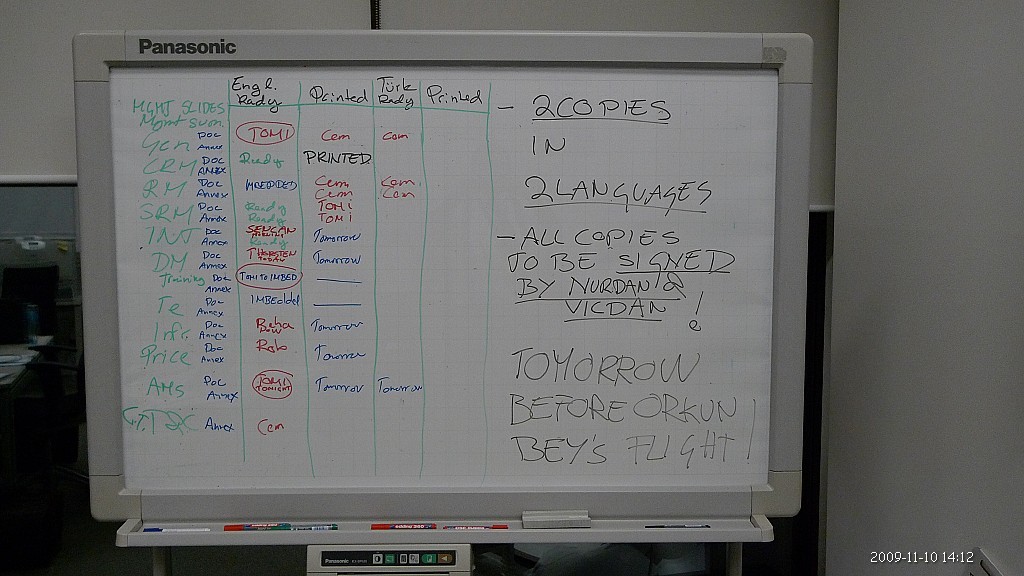 Panasonic
Engl. Rady Printed Türk Rady Printed
MGMT SLIDES
Mgmt Sum.
Gen Doc Annex TOMI Cem Cem
CRM Doc ANNEX Ready PRINTED
RM Doc IMBEDDED Cem Cem
Annex Cem Cem
SRM Doc Ready TOMI
Annex Ready TOMI
INT Doc SENCAN
Annex Ready Tomorrow
DM Doc THORSTEN TODAY
Annex Tomorrow
Training Doc Annex TOMI TO IMBED —
Te Doc Annex IMBEdded —
Infr. Doc Annex Baha Tomorrow
Price Doc Annex Rob Tomorrow
AMS Doc Annex TOMI TONIGHT Tomorrow Tomorrow
Annex Cem
- 2 COPIES
IN
2 LANGUAGES
- ALL COPIES
TO BE SIGNED
BY NURDAN &
VICDAN !
TOMORROW
BEFORE ORKUN
BEY'S FLIGHT !
edding 360
Panasonic
2009-11-10 14:12